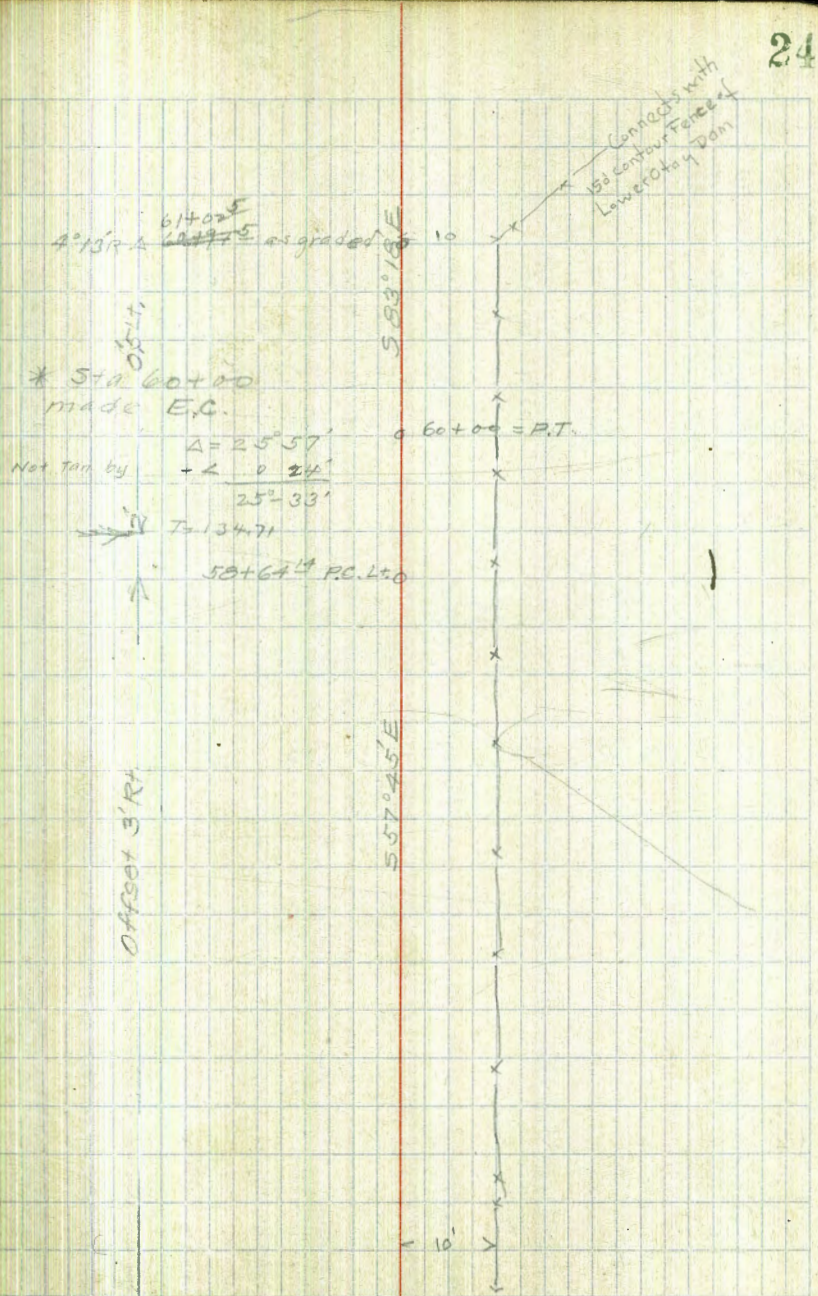 24
Connects with
150 Contour Fence of
Lower Otay Dam
61+02⁵
4°13'R Δ 60+97⁵ as graded
10
S 83°18'E
0.5' Lt.
* Sta 60+00
made E.C.
60+00 = P.T.
Δ = 25°57'
Not Tan by - ∠ 0 24'
25°-33'
2'
T= 134.71
58+64¹⁴ P.C. Lt.
S 57°45'E
Offset 3' Rt.
10'